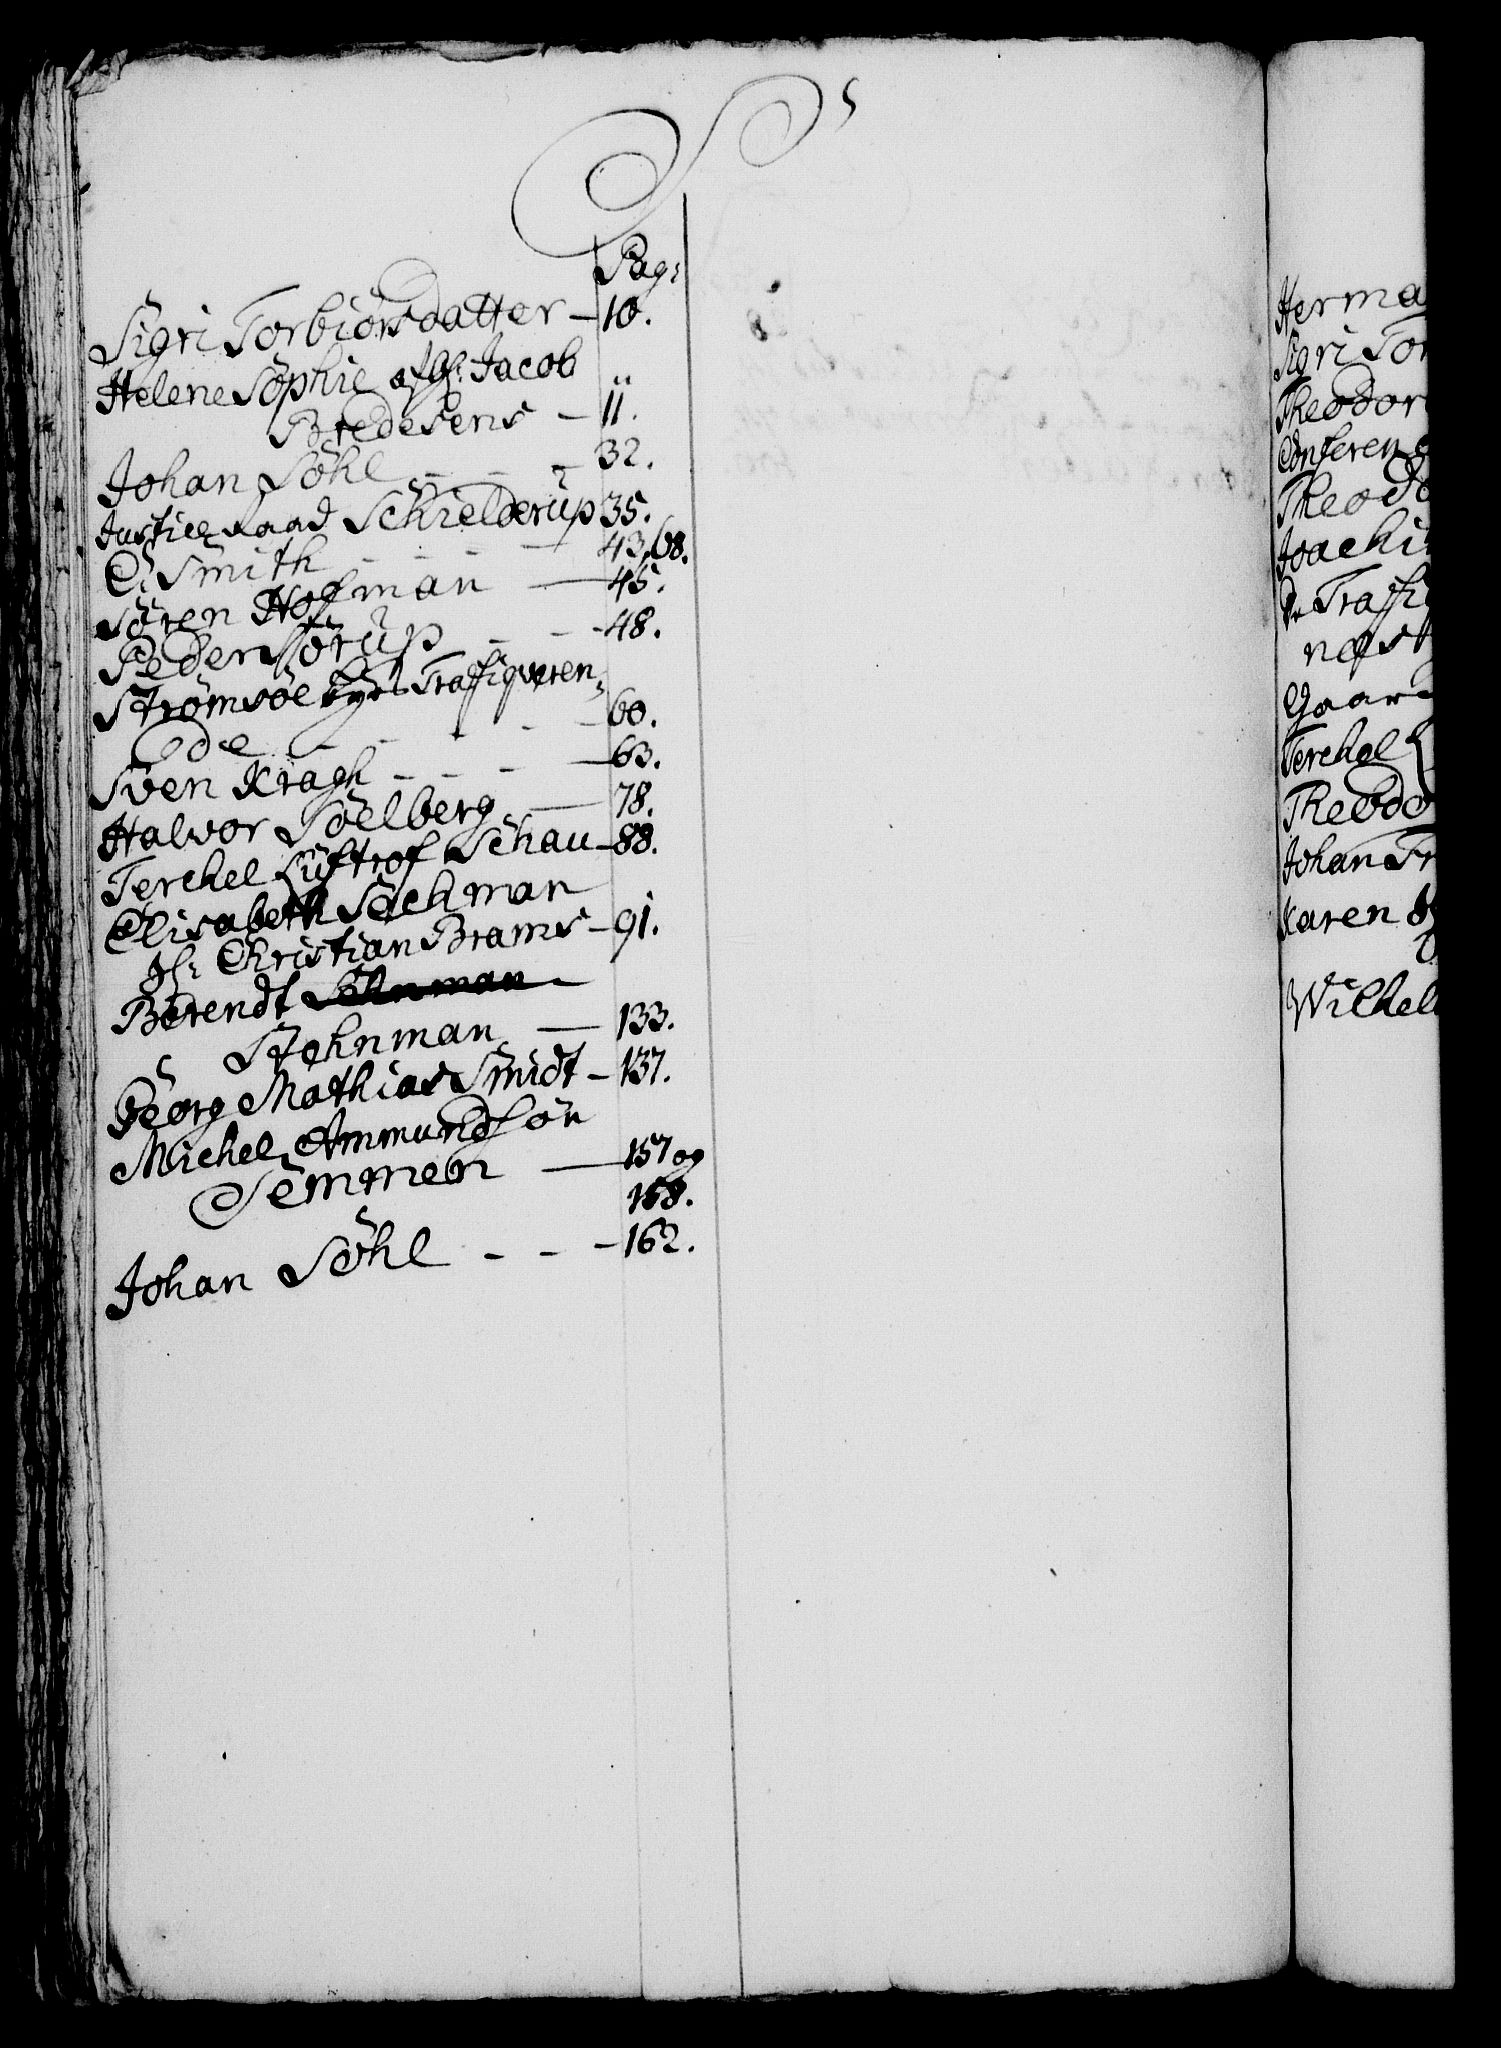 S
Pag:
Sigri Torbiörsdatter – 10.
Helene Sophie afg: Jacob
Bredesens – 11.
Johan Söhl – – – 32.
Justice Raad Schielderup 35.
C: Smith – – – 43. 68.
Sören Hofman – 45.
Peder Störup – – 48.
Strömsöe Byes Trafiqveren-
de – – – – 60.
Sven Kragh – – – 63.
Halvor Söelberg – 78.
Terchel Luftrof Schau – 88.
Elisabeth Sechman
Christian Brams – 91.
Berendt
Stehnman – 133.
Georg Mathias Smidt – 137.
Michel Ammundsön
Semmen – 157 og
158.
Johan Söhl – – – 162.
Herma
Sigri Tor
Theodor
Conferen
Theodo
Joachi
De Traffi
næst
Gaar
Terchel
Theodo
Johan Tr
Karen
Wilhel